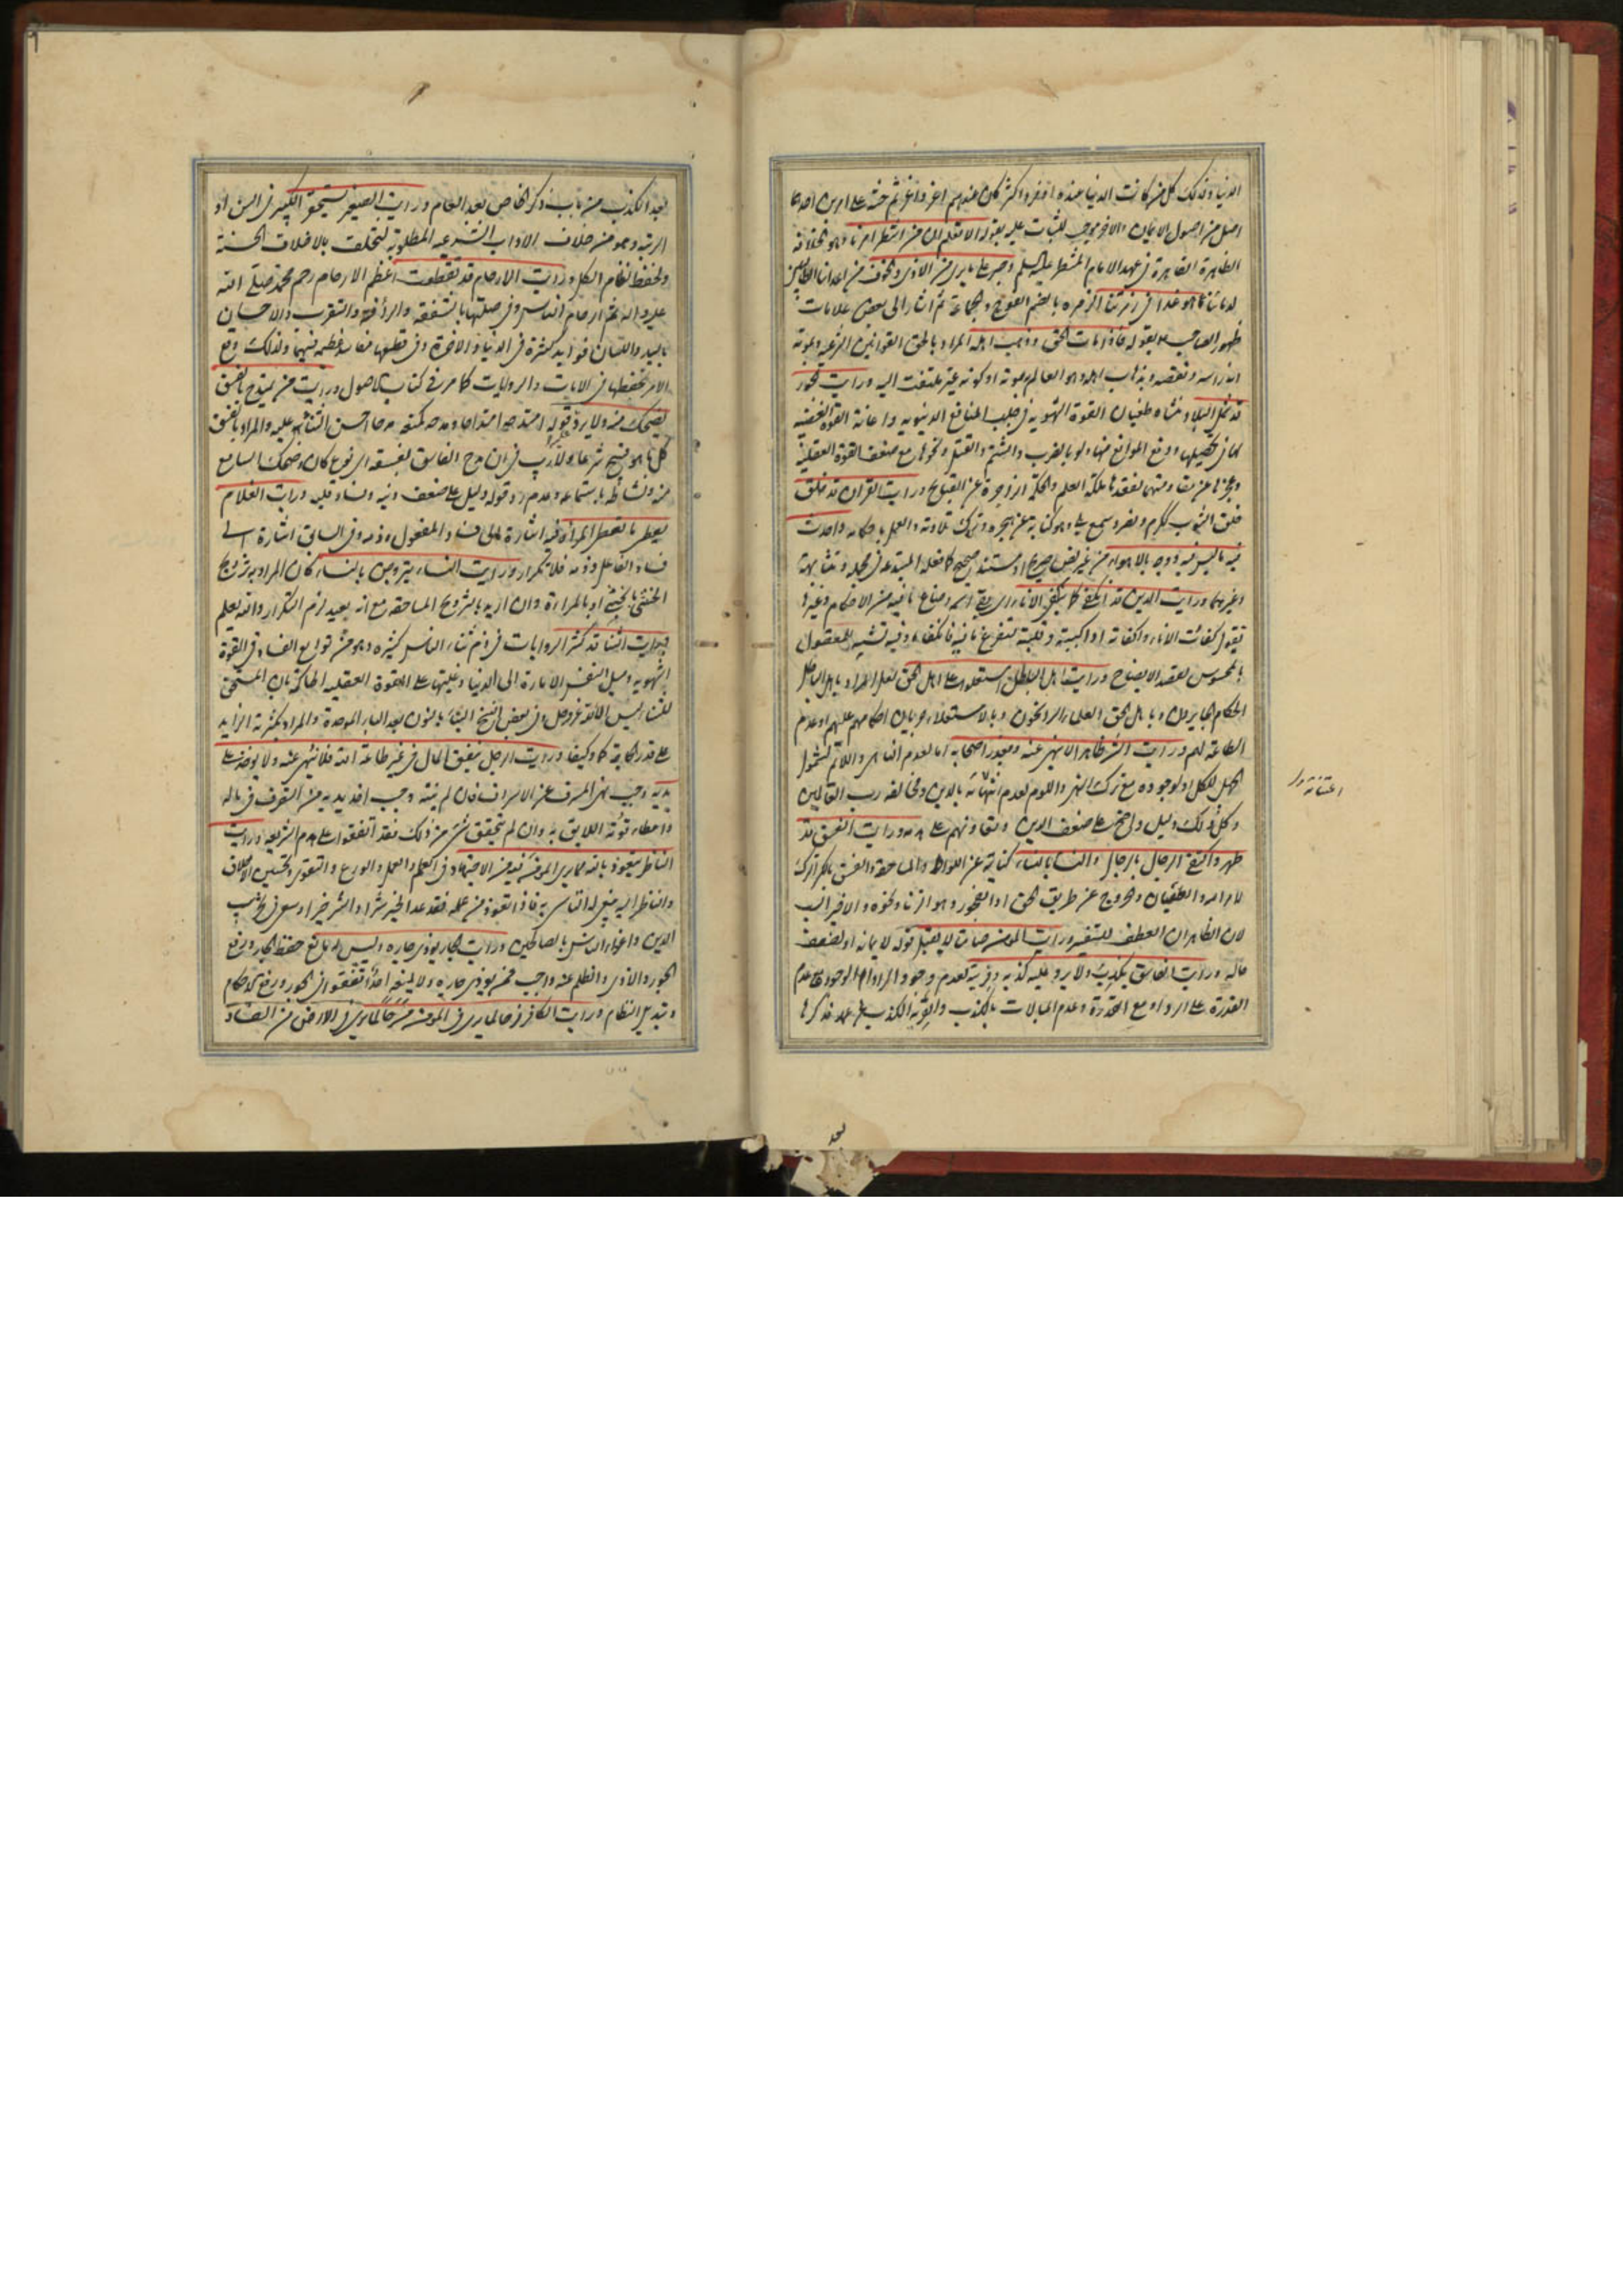 الدنيا وكذلك كل من كانت الدنيا عنده اوفر واكثر كان عندهم اعز واعز ثم حثه على امرين احدهما
اصل من اصول الايمان والاخر موجب للثبات عليه بقوله الا تعلم ان من انتظر امرنا وهو الخلافة
الظاهرة القاهرة في عهد الامام المنتظر عليه السلم وصبر على ما يرى من الاذى والخوف من اعدائنا الظالمين
هو غدا في زمرتنا الزمرة بالضم الفوج والجماعة ثم اشار الى بعض علامات
ظهور الصاحب بقوله فاذا رايت الحق وذهب اهله المراد بالحق القوانين الشرعية وبموته
اندراسه ونقصه وبذهاب اهله وهو العالم به موته او كونه غير ملتفت اليه ورايت الجور
قد شمل البلاد منشاه طغيان القوة الشهوية في جلب المنافع الدنيوية واعانة القوة الغضبية
لها في تحصيلها ودفع الموانع عنها ولو بالضرب والشتم والقتل ونحوها مع ضعف القوة العقلية
وعجزها عن مقاومتهما لفقدها ملكة العلم والحكمة الزاجرة عن القبايح ورايت القران قد خلق
خلق الثوب ككرم ونصر وسمع بلى وهو كناية عن هجره وترك تلاوته والعمل باحكامه واحدث
فيه ما ليس فيه ووجه بالاهواء من غير نص صريح او مستند صحيح كما فعله المبتدعة في مجمله ومتشابهه
وغيرهما ورايت الدين قد انكفى كما ينكفى الاناء
تقول كفات الاناء واكفاته اذا كببته وقلبته لتفرغ ما فيه فانكفا وفيه تشبيه للمعقول
بالمحسوس لقصد الايضاح ورايت اهل الباطل قد استعلوا على اهل الحق لعل المراد باهل الباطل
الحكام الجايرون وباهل الحق العلماء الراسخون وبالاستعلاء جريان احكامهم عليهم وعدم
الطاعة لهم ورايت الشر ظاهرا لا ينهى عنه ويعذر اصحابه اما لعدم الناهى واللائم لشمول
الجهل للكل او لوجوده مع ترك النهى واللوم لعدم اعتنائه بالدين ومخالفة رب العالمين
وكل ذلك دليل واضح على ضعف الدين ورايت الفسق قد
ظهر واكتفى الرجال بالرجال والنساء بالنساء كناية عن اللواط والمساحقة والفسق بالكسر الترك
لامر الله والعصيان والخروج عن طريق الحق او الفجور وهو الزنا ونحوه والاخير انسب
لان الظاهر ان العطف للتفسير ورايت المؤمن صامتا لا يقبل قوله لايمانه او لضعف
حاله ورايت الفاسق يكذب ولا يرد عليه كذبه وفريته لعدم وجود الراد او لوجوده مع عدم
القدرة على الرد او مع القدرة وعدم المبالات بالكذب والفرية الكذب عن عمد فذكرها
اعتنائه
بعد
بعد الكذب من باب ذكر الخاص بعد العام ورايت الصغير يستحقر الكبير في السن او
الرتبة وهو من خلاف الاداب الشرعية المطلوبة للتخلق بالاخلاق الحسنة
ولحفظ نظام الكل ورايت الارحام قد تقطعت اعظم الارحام رحم محمد صلى الله
عليه واله ثم ارحام الناس وفي صلتها بالشفقة والرأفة والتقرب والاحسان
باليد واللسان فوايد كثيرة في الدنيا والاخرة وفي قطعها مفاسد عظيمة فيهما ولذلك وقع
الامر بحفظها في الايات والروايات كما مر في كتاب الاصول ورايت من يمتدح بالفسق
يضحك منه ولا يرد قوله امتدحه امتداحا ومدحه كمنعه مدحا احسن الثناء عليه والمراد بالفسق
كل ما هو قبيح شرعا ولا ريب في ان مدح الفاسق بفسقه اى نوع كان وضحك السامع
منه ونشاطه باستماعه وعدم رد قوله دليل على ضعف دينه وفساد قلبه ورايت الغلام
يعطى ما تعطى المراة فيه اشارة الى فساد المفعول وذمه وفي السابق اشارة الى
فساد الفاعل وذمه فلا تكرار ورايت النساء يتزوجن بالنساء كان المراد به تزويج
الخنثى بالخنثى او بالمراة وان اريد بالتزويج المساحقة مع انه بعيد لزم التكرار والله يعلم
ورايت الثناء قد كثر الروايات في ذم ثناء الناس كثيرة وهو من توابع الفساد في القوة
الشهوية وميل النفس الامارة الى الدنيا وغلبتها على القوة العقلية الحاكمة بان المستحق
للثناء ليس الا الله عز وجل وفي بعض النسخ البناء بالنون بعد الباء الموحدة والمراد بكثرته الزايد
على قدر الحاجة كما وكيفا ورايت الرجل ينفق المال في غير طاعة الله فلا ينهى عنه ولا يوخذ على
يديه وجب نهى المسرف عن الاسراف فان لم ينته وجب اخذ يديه من التصرف في ماله
واعطاء قوته اللايق به وان لم يتحقق شىء من ذلك فقد اتفقوا على هدم الشريعة ورايت
الناظر يتعوذ بالله مما يرى المؤمن فيه من الاجتهاد في العلم والعمل والورع والتقوى وتحسين الاخلاق
والناظر اليه ينبغى له التاسى به فاذا تعوذ من عمله فقد عد الخير شرا والشر خيرا وسعى في تخريب
الدين واغواء الناس بالصالحين ورايت الجار يوذى جاره وليس له مانع حفظ الجار ودفع
الجور والاذى والظلم عنه واجب فمن يوذى جاره ولا يمنعه احد اتفقوا في الجور ورفع الاحكام
وتبديل النظام ورايت الكافر فرحا لما يرى في المؤمن مرحا لما يرى في الارض من الفساد